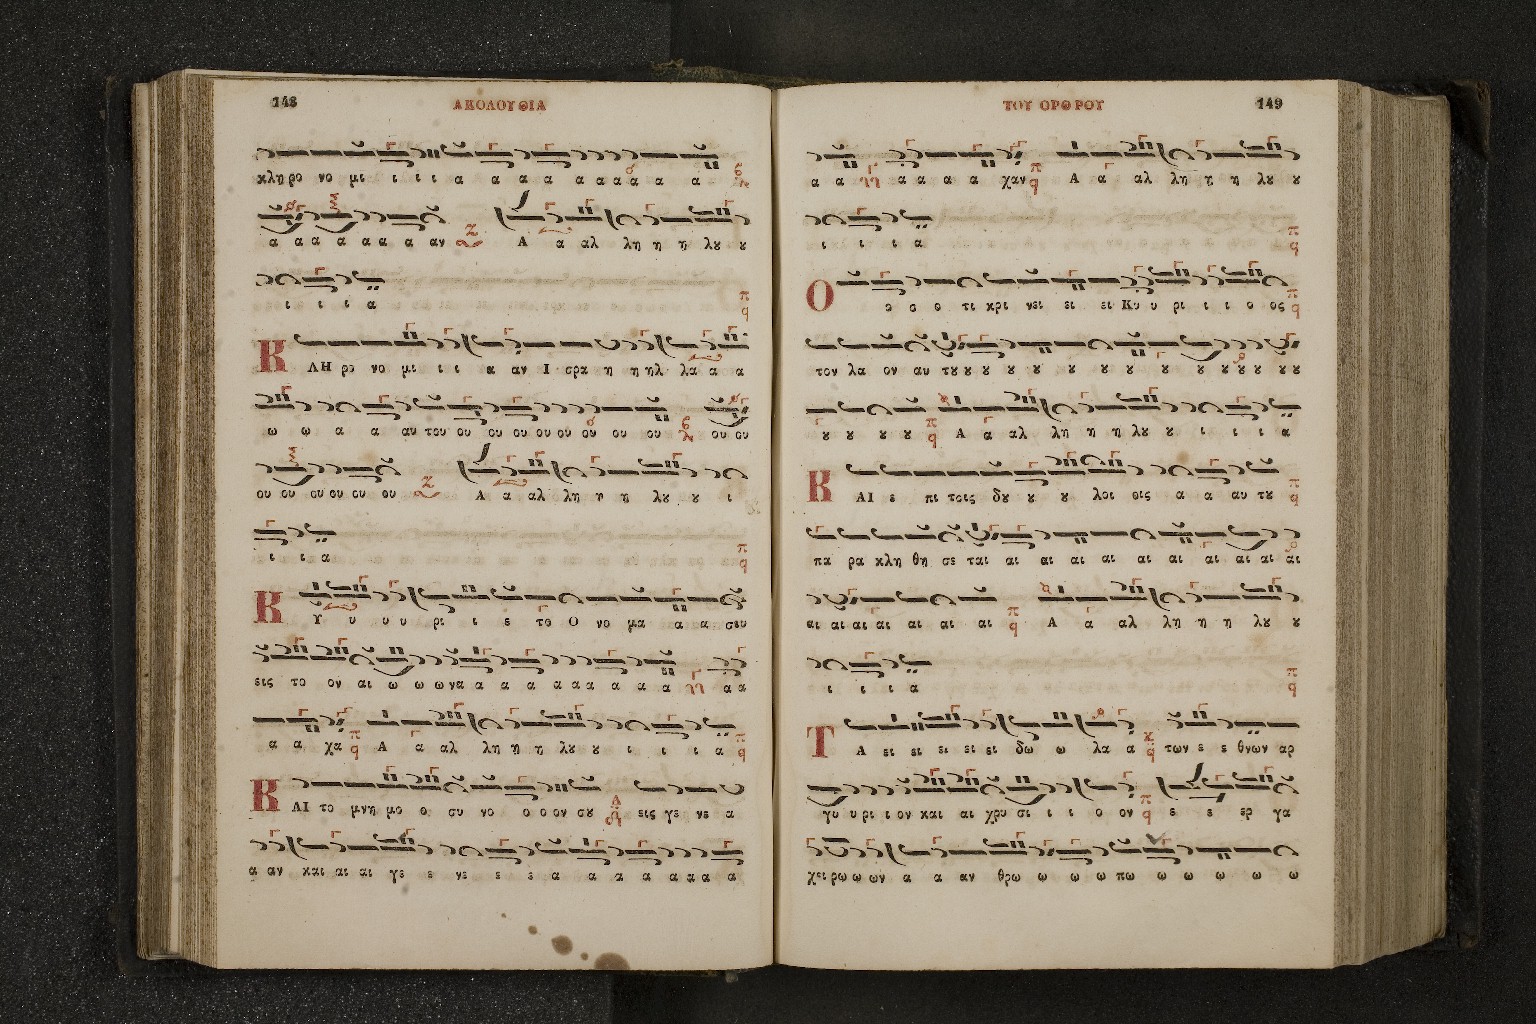 148 ΑΚΟΛΟΥΘΙΑ
κλη ρο νο μι ι ι ι α α α α α α α α α α
α α α α α α α αν Α α αλ λη η η λȣ ȣ
ι ι ι α
ΚΛΗ ρο νο μι ι ι α αν Ι σρα η η ηλ λα α α
ω ω α α αυ του ου ου ου ου ου ου ου ου ου ου
ου ου ου ου ου ου Α α αλ λη η η λȣ ȣ ι
ι ι α
ΚΥ υ υ υ ρι ι ε το Ο νο μα α α σου
εις το ον αι ω ω ω να α α α α α α α α α α α
α α χα Α α αλ λη η η λȣ ȣ ι ι ι α
ΚΑΙ το μνη μο ο συ νο ο ο ον σȣ εις γε νε α
α αν και αι αι γε ε νε ε ε α α α α α α α
ΤΟΥ ΟΡΘΡΟΥ 149
α α α α α α χαν Α α αλ λη η η λȣ ȣ
ι ι ι α
Ο ο ο ο τι κρι νει ει ει Κυ υ ρι ι ι ο ος
τον λα ον αυ τȣ ȣ ȣ ȣ ȣ ȣ ȣ ȣ ȣ ȣ ȣ ȣ ȣ ȣ ȣ
ȣ ȣ ȣ ȣ Α α αλ λη η η λȣ ȣ ι ι ι α
ΚΑΙ ε πι τοις δȣ ȣ ȣ λοι οις α α αυ τȣ
πα ρα κλη θη σε ται αι αι αι αι αι αι αι αι αι αι
αι αι αι αι αι αι αι Α α αλ λη η η λȣ ȣ
ι ι ι α
ΤΑ ει ει ει ει ει δω ω λα α των ε ε θνων αρ
γυ υ ρι ι ον και αι χρυ σι ι ι ο ον ε ε ερ γα
χει ρω ω ων α α αν θρω ω ω ω πω ω ω ω ω ω